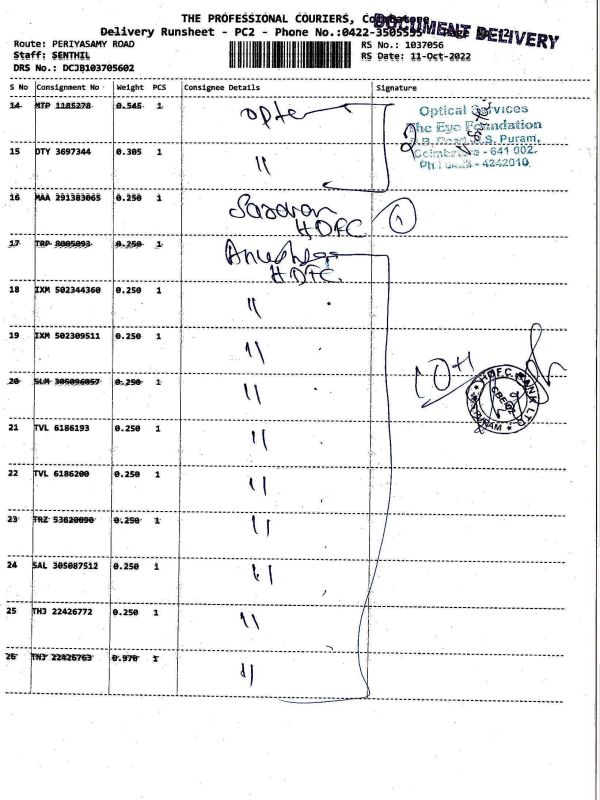 THE PROFESSIONAL COURIERS, Coimbatore
DOCUMENT DELIVERY
Delivery Runsheet - PC2 - Phone No.:0422-3505555 Page No. 2
Route: PERIYASAMY ROAD
RS No.: 1037056
Staff: SENTHIL
RS Date: 11-Oct-2022
DRS No.: DCJB103705602
S No Consignment No Weight PCS Consignee Details Signature
14 MTP 1185278 0.545 1
Optical Services
The Eye Foundation
D.B. Road, R.S. Puram,
Coimbatore - 641 002.
Ph.: 0422 - 4242010
2
15 DTY 3697344 0.305 1 "
16 MAA 291383065 0.250 1 Saravan
HDFC
1
17 TRP 8005093 0.250 1
HDFC
18 IXM 502344360 0.250 1 "
19 IXM 502309511 0.250 1 "
20 SLM 305096057 0.250 1 "
HDFC BANK LTD
R.S. PURAM
21 TVL 6186193 0.250 1 "
22 TVL 6186200 0.250 1 "
23 TRZ 53820090 0.250 1 "
24 SAL 305087512 0.250 1 "
25 THJ 22426772 0.250 1 "
26 THJ 22426763 0.970 1 "